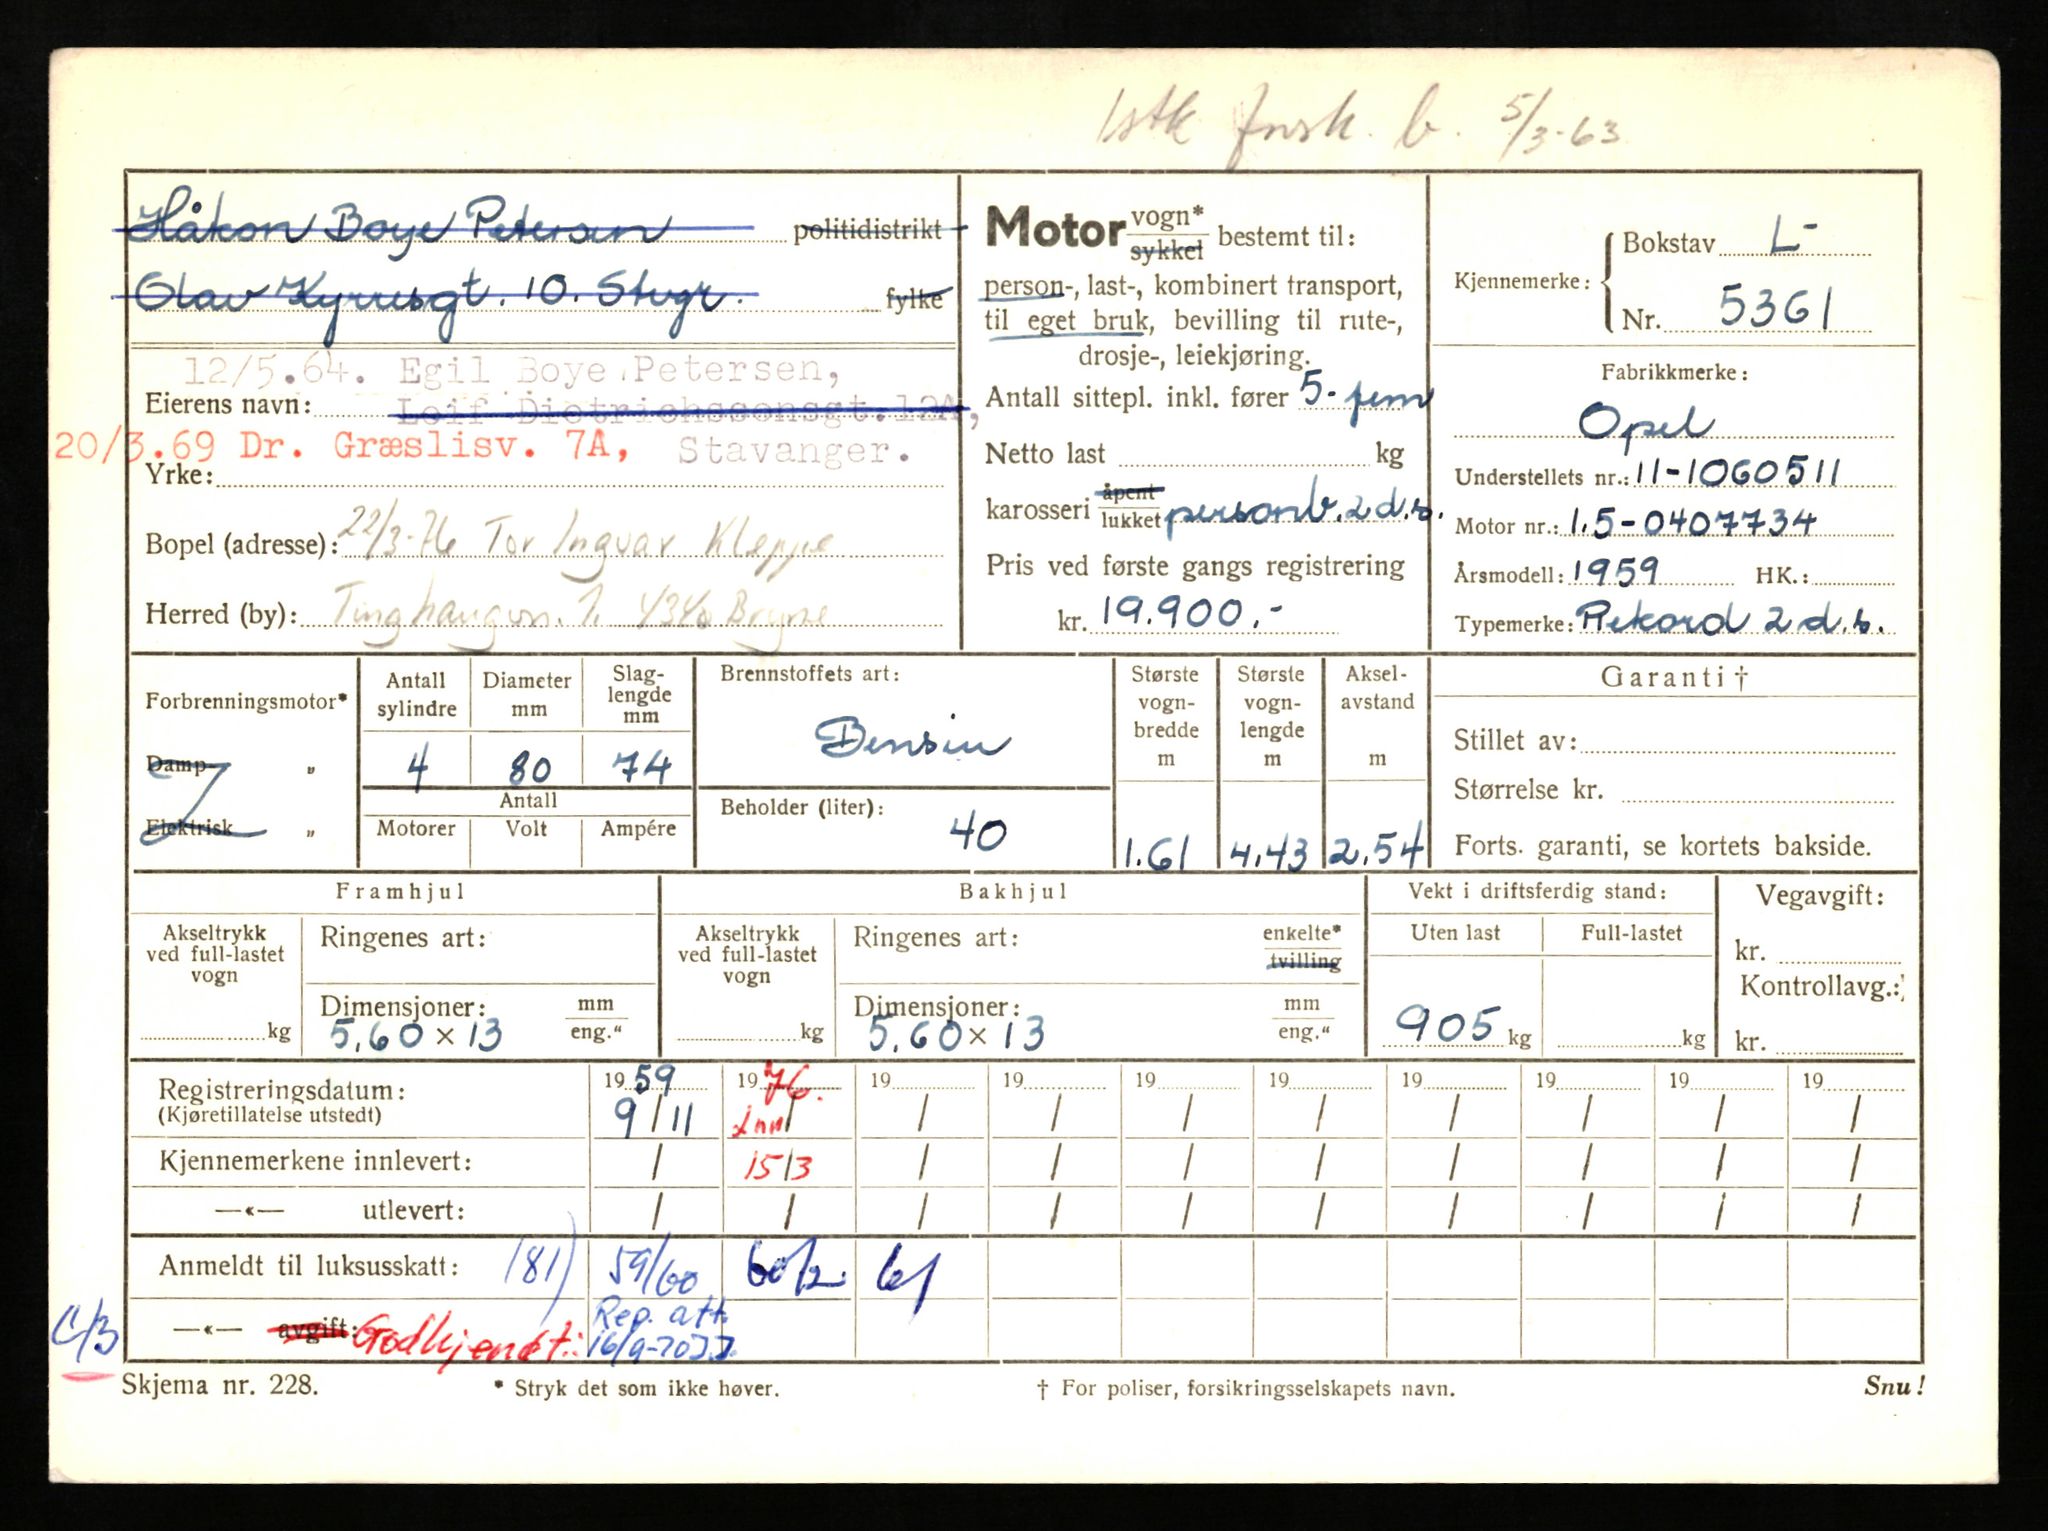 1 stk forsk. b. 5/3-63
Håkon Boye Petersen politidistrikt
Olav Kyrresgt. 10. Stvgr. fylke
12/5.64. Egil Boye Petersen,
Eierens navn: Leif Dietrichssonsgt. 12A,
20/3.69 Dr. Græslisv. 7A, Stavanger.
Yrke:
Bopel (adresse): 22/3-76 Tor Ingvar Kleppe
Herred (by): Tinghaugvn. 4340 Bryne
Motor vogn* sykkel bestemt til:
person-, last-, kombinert transport,
til eget bruk, bevilling til rute-,
drosje-, leiekjøring.
Antall sittepl. inkl. fører 5- fem
Netto last kg
karosseri åpent lukket personb. 2 d.s.
Pris ved første gangs registrering
kr. 19.900.-
Kjennemerke: Bokstav L-
Nr. 5361
Fabrikkmerke:
Opel
Understellets nr.: 11-1060511
Motor nr.: 1.5-0407734
Årsmodell: 1959 HK.:
Typemerke: Rekord 2 d.s.
Forbrenningsmotor*
Damp- "
Elektrisk "
Antall sylindre Diameter mm Slag-lengde mm
4 80 74
Antall
Motorer Volt Ampére
Brennstoffets art:
Bensin
Beholder (liter):
40
Største vogn-bredde m Største vogn-lengde m Aksel-avstand m
1.61 4.43 2.54
Garanti †
Stillet av:
Størrelse kr.
Forts. garanti, se kortets bakside.
Framhjul
Akseltrykk ved full-lastet vogn
kg
Ringenes art:
Dimensjoner: mm eng."
5.60 × 13
Bakhjul
Akseltrykk ved full-lastet vogn
kg
Ringenes art: enkelte* tvilling
Dimensjoner: mm eng."
5.60 × 13
Vekt i driftsferdig stand:
Uten last Full-lastet
905 kg kg
Vegavgift:
kr.
Kontrollavg.:
kr.
Registreringsdatum: 1959 1976. 19 19 19 19 19 19 19 19
(Kjøretillatelse utstedt) 9/11 Inn / / / / / / / / /
Kjennemerkene innlevert: / 15/3 / / / / / / / /
—«— utlevert: / / / / / / / / / /
Anmeldt til luksusskatt: 181) 59/60 60/2. 61
C/3 —«— avgift: Godkjendt: Rep. att. 16/9-70 JJ.
Skjema nr. 228. * Stryk det som ikke høver. † For poliser, forsikringsselskapets navn. Snu!